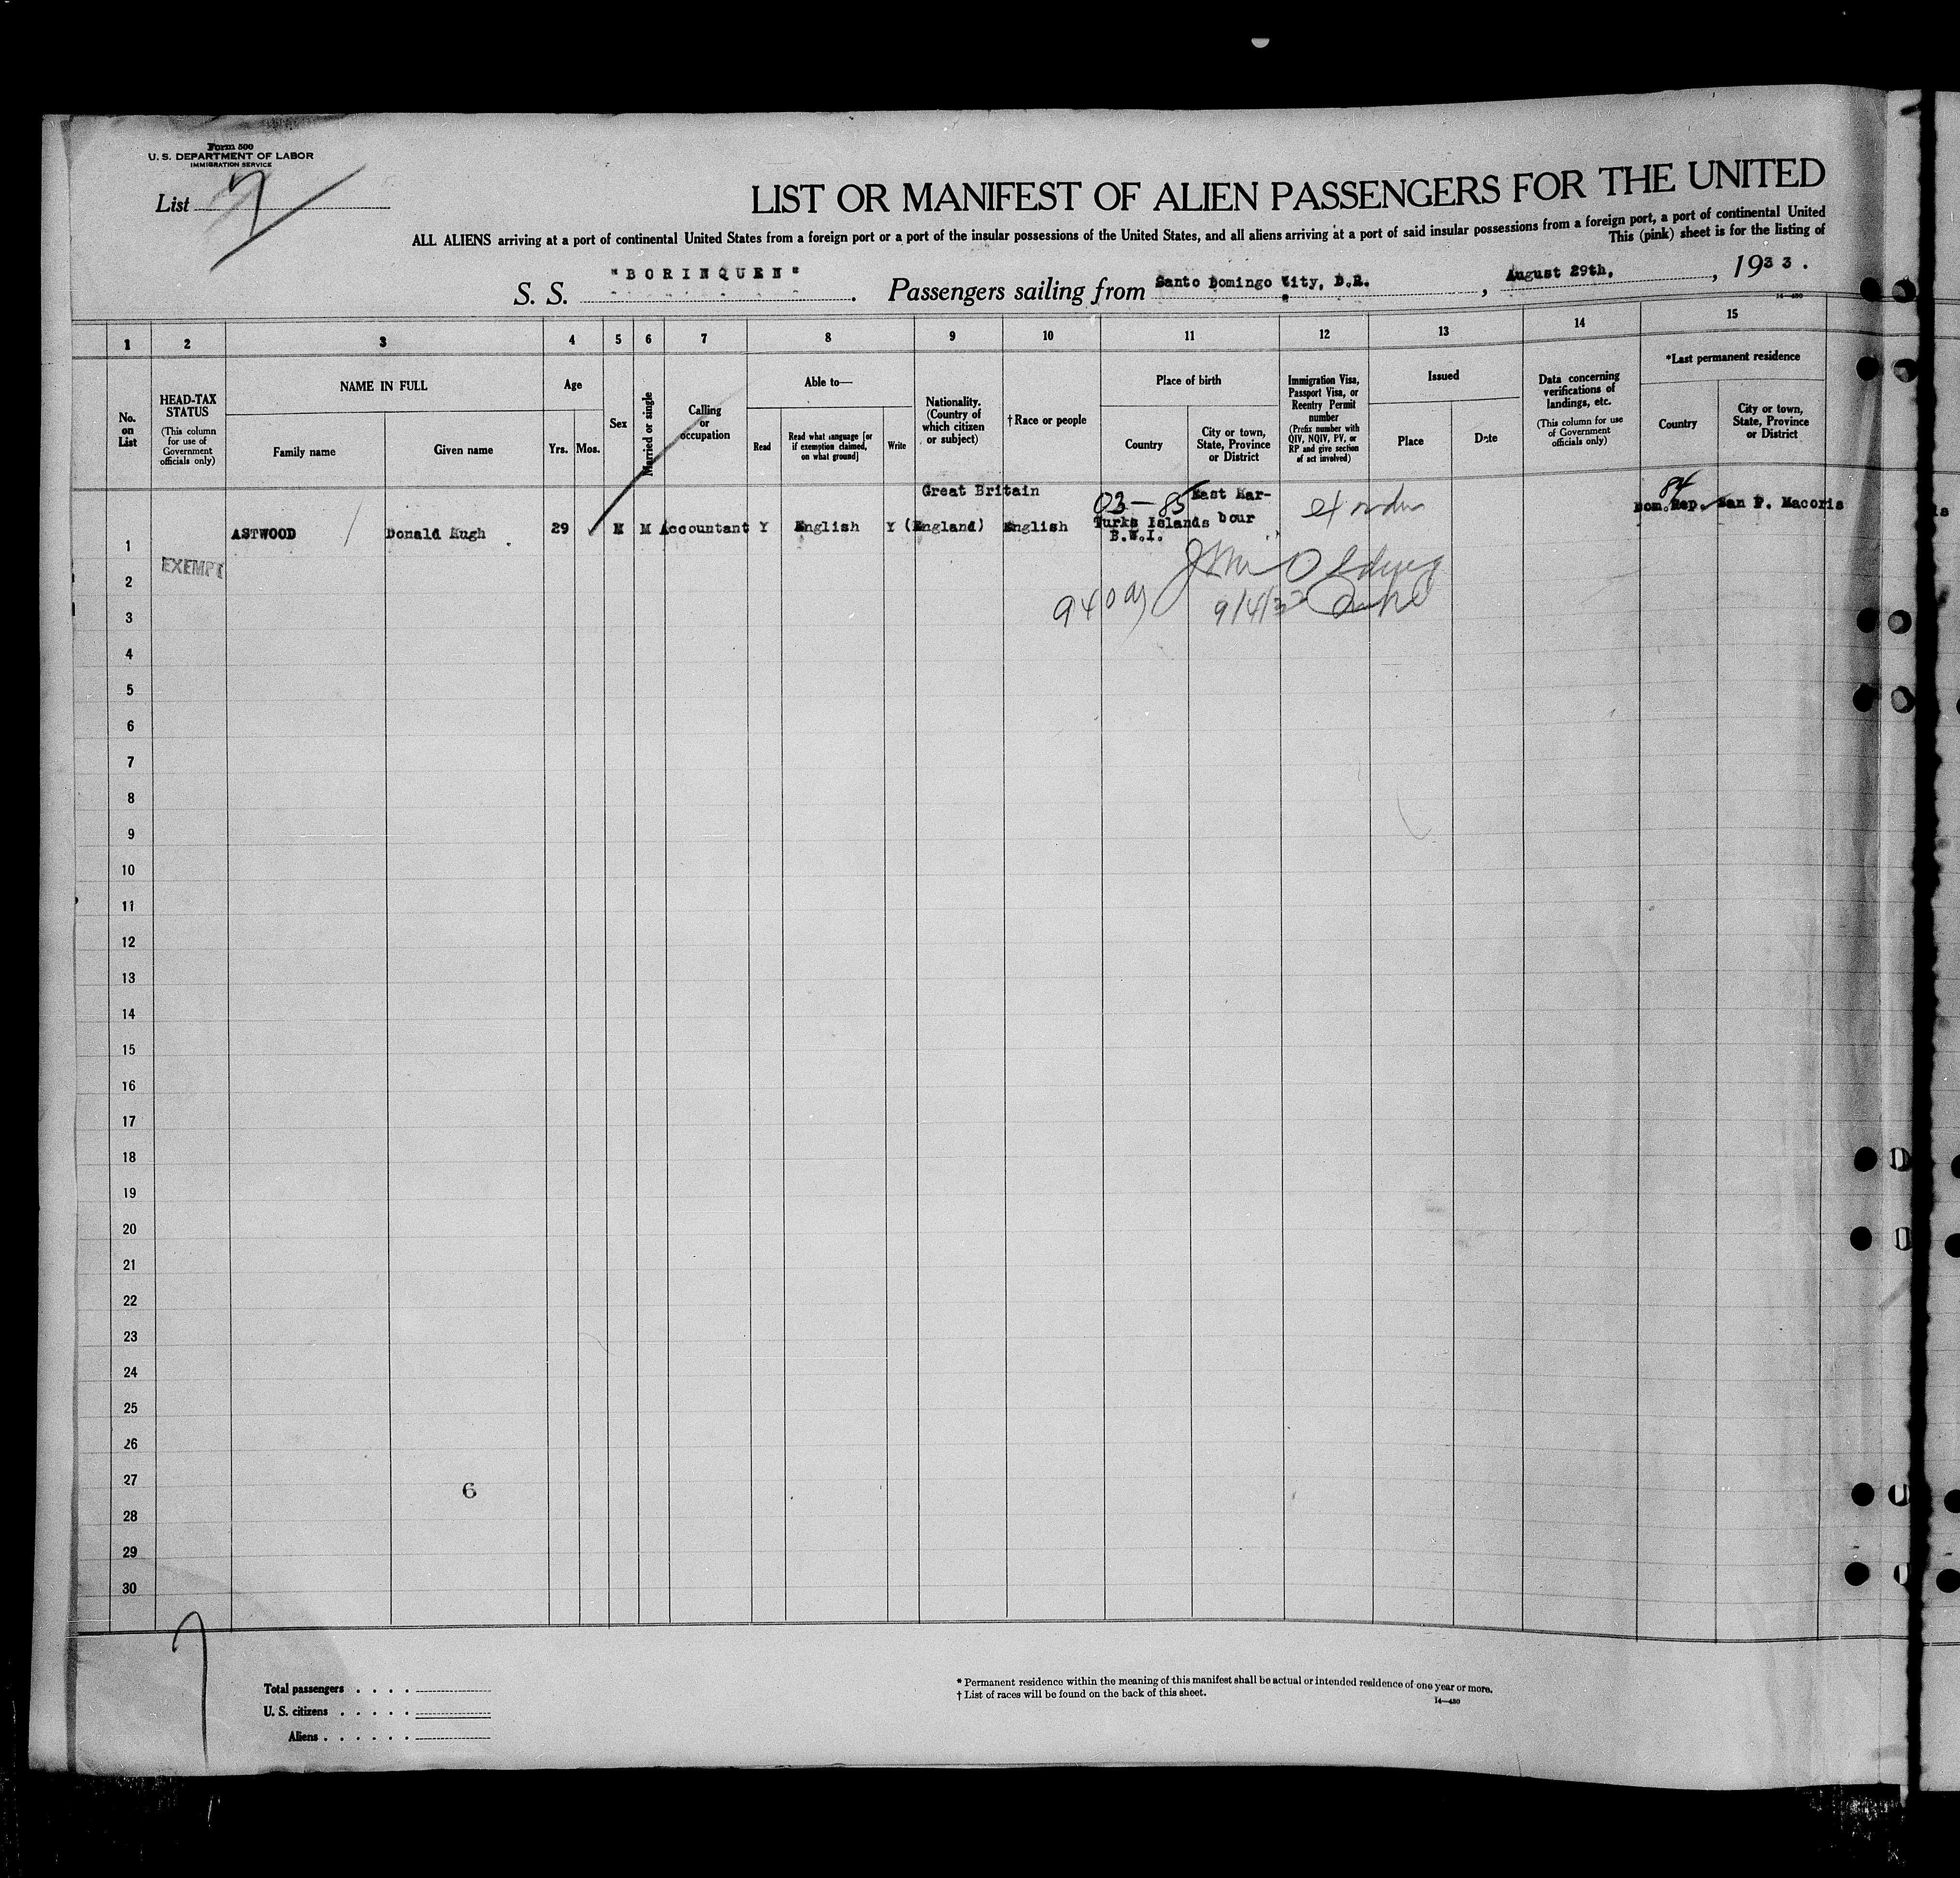 Form 500
U. S. DEPARTMENT OF LABOR
IMMIGRATION SERVICE
List 7
LIST OR MANIFEST OF ALIEN PASSENGERS FOR THE UNITED
ALL ALIENS arriving at a port of continental United States from a foreign port or a port of the insular possessions of the United States, and all aliens arriving at a port of said insular possessions from a foreign port, a port of continental United
This (pink) sheet is for the listing of
S. S. "BORINQUEN". Passengers sailing from Santo Domingo City, D.R., August 29th, , 1933.
14—430
1 2 3 4 5 6 7 8 9 10 11 12 13 14 15
No. on List
HEAD-TAX STATUS
(This column for use of Government officials only)
NAME IN FULL
Family name
Given name
Age
Yrs.
Mos.
Sex
Married or single
Calling or occupation
Able to—
Read
Read what language [or if exemption claimed, on what ground]
Write
Nationality. (Country of which citizen or subject)
†Race or people
Place of birth
Country
City or town, State, Province or District
Immigration Visa, Passport Visa, or Reentry Permit number
(Prefix number with QIV, NQIV, PV, or RP and give section of act involved)
Issued
Place
Date
Data concerning verifications of landings, etc.
(This column for use of Government officials only)
*Last permanent residence
Country
City or town, State, Province or District
Great Britain 03—85 East Har- 84
ASTWOOD Donald Hugh 29 M M Accountant Y English Y (England) English Turks Islands bour Dom.Rep. San P. Macoris
B.W.I.
1
EXEMPT
2
3
4
5
6
7
8
9
10
11
12
13
14
15
16
17
18
19
20
21
22
23
24
25
26
27
6
28
29
30
7
Total passengers . . . .
U. S. citizens . . . . .
Aliens . . . . . .
* Permanent residence within the meaning of this manifest shall be actual or intended residence of one year or more.
† List of races will be found on the back of this sheet.
14—430